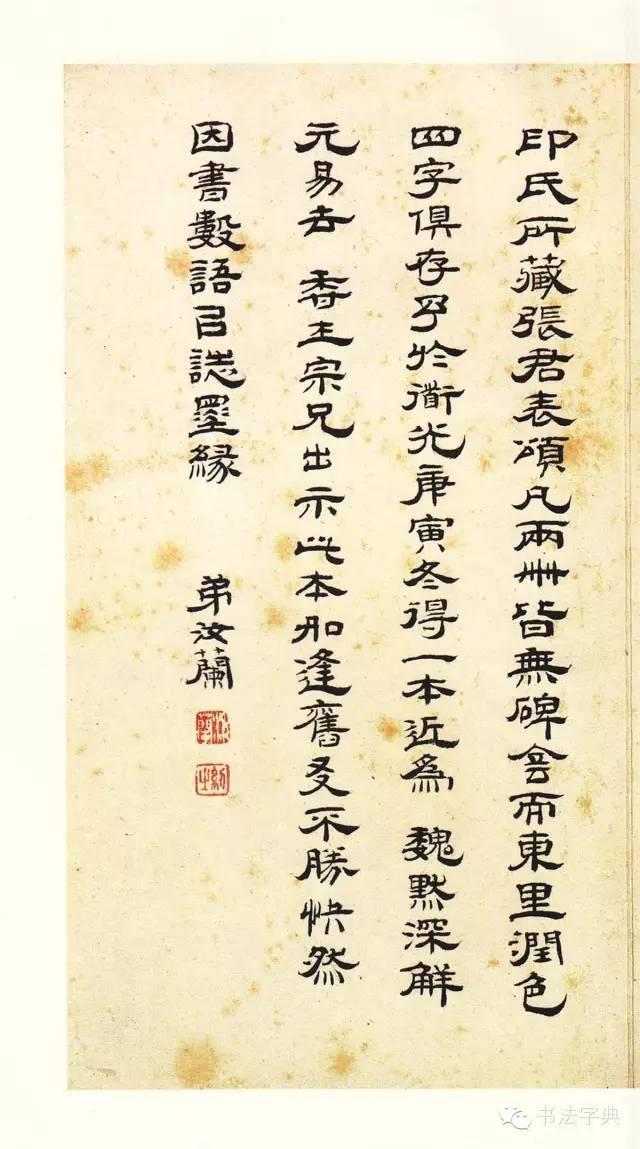 印氏所藏張君表頌凡兩冊皆無碑侌而東里潤色
四字俱存予於衜光庚寅冬得一本近爲 魏默深解
元易去 宗兄出示此本如逢舊友不勝快然
因書數語㠯誌墨緣
弟汝蘭
书法字典